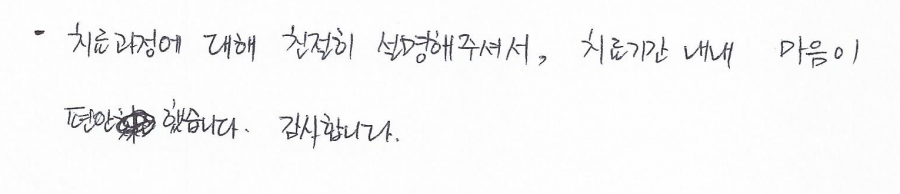 - 치료과정에 대해 친절히 설명해주셔서, 치료기간 내내 마음이
편안했습니다. 감사합니다.